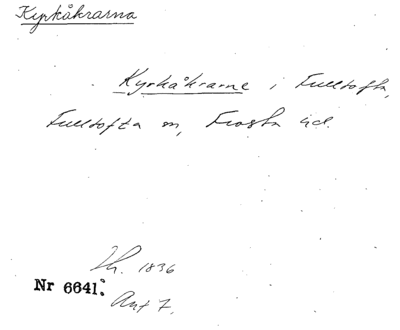 Kyrkåkrarna
Kyrkåkrarne i Fulltofta,
Fulltofta sn, Frosta hd.
1836
Nr 6641.
Ant 7.